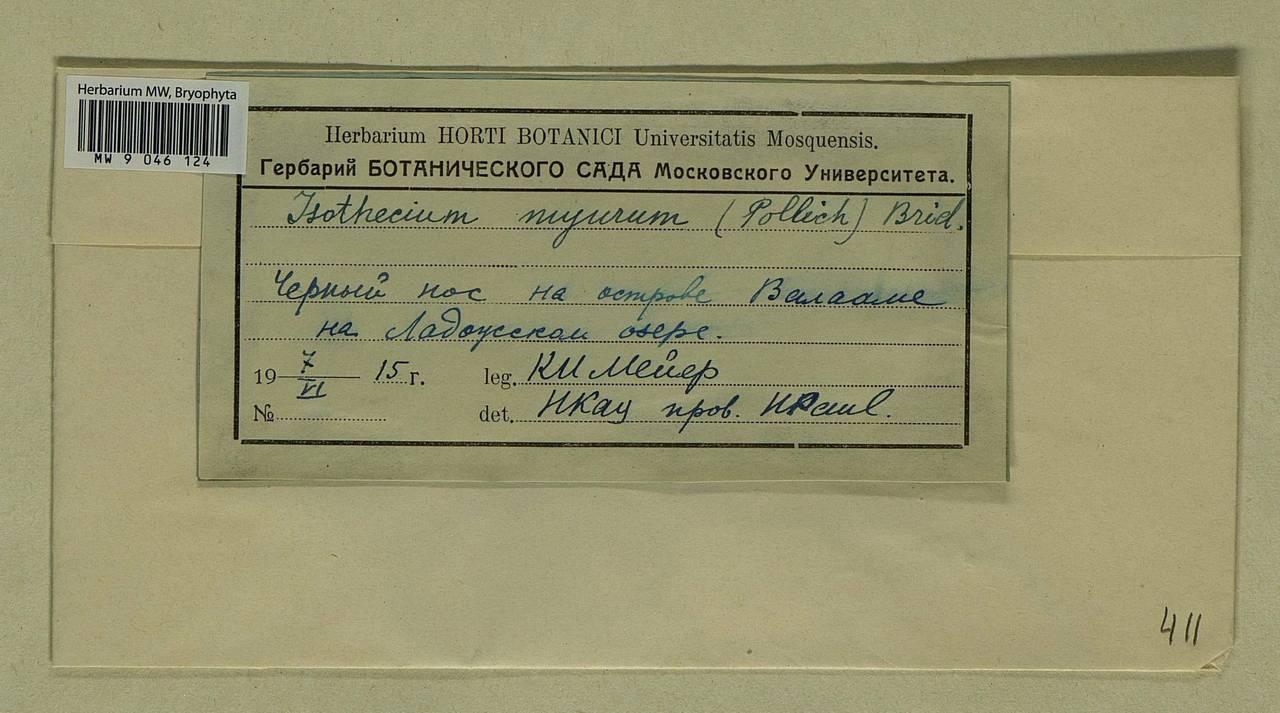 Herbarium MW, Bryophyta
MW 9 046 124
Herbarium HORTI BOTANICI Universitatis Mosquensis.
Гербарий БОТАНИЧЕСКОГО САДА Московского Университета.
Isothecium myurum (Pollich) Brid.
Черный нос на острове Валааме
на Ладожском озере.
19 7/VI 15 г. leg. КИ Мейер
№ det. НКац пров.
411